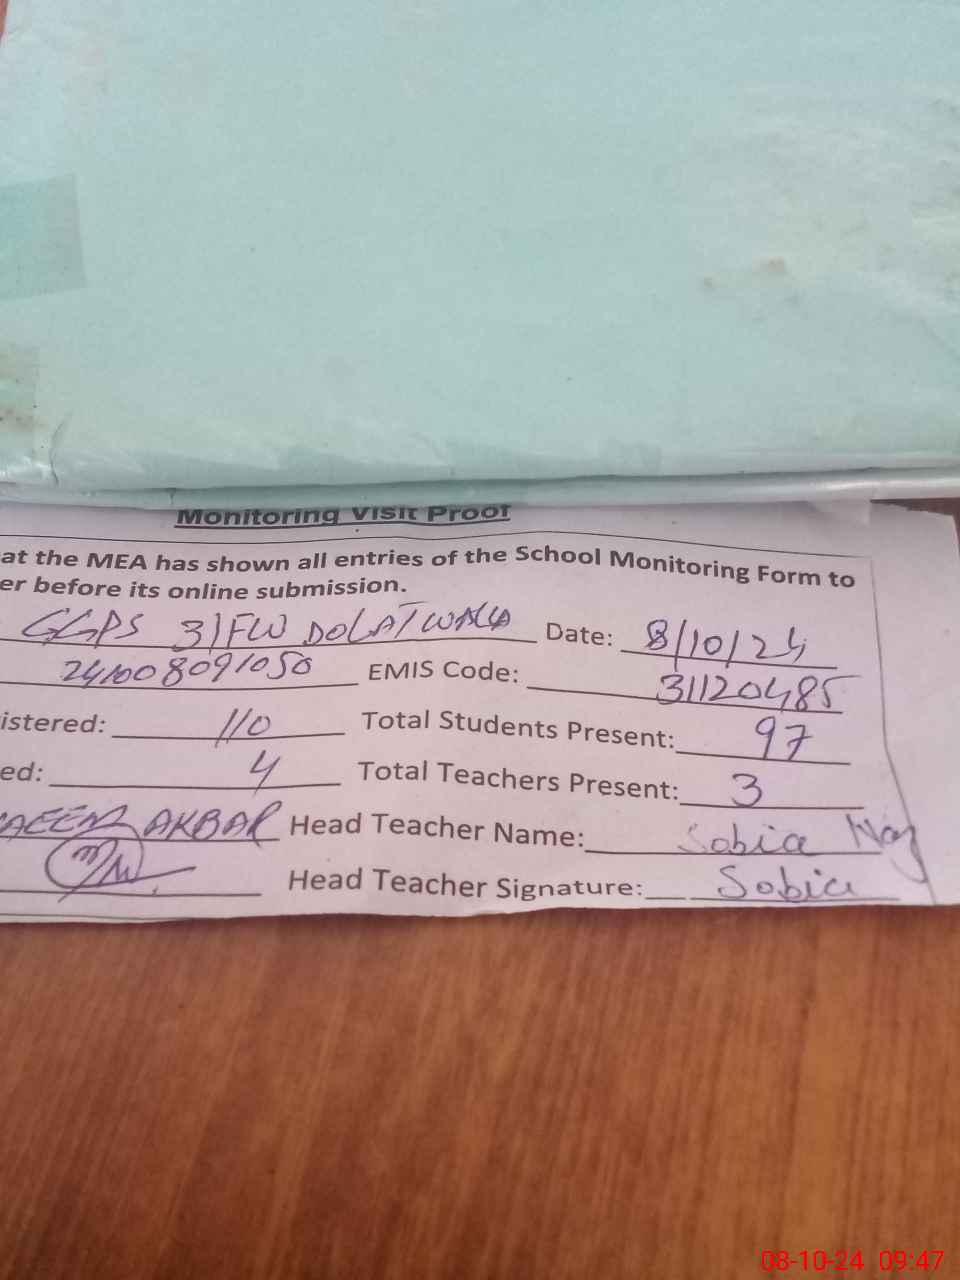 Monitoring Visit Proof
at the MEA has shown all entries of the School Monitoring Form to
er before its online submission.
GGPS 31FW DOLATWALA Date: 8/10/24
241008091050 EMIS Code: 31120485
istered: 110 Total Students Present: 97
ed: 4 Total Teachers Present: 3
AEEM AKBAR Head Teacher Name: Sobia Naz
Head Teacher Signature: Sobia
08-10-24 09:47